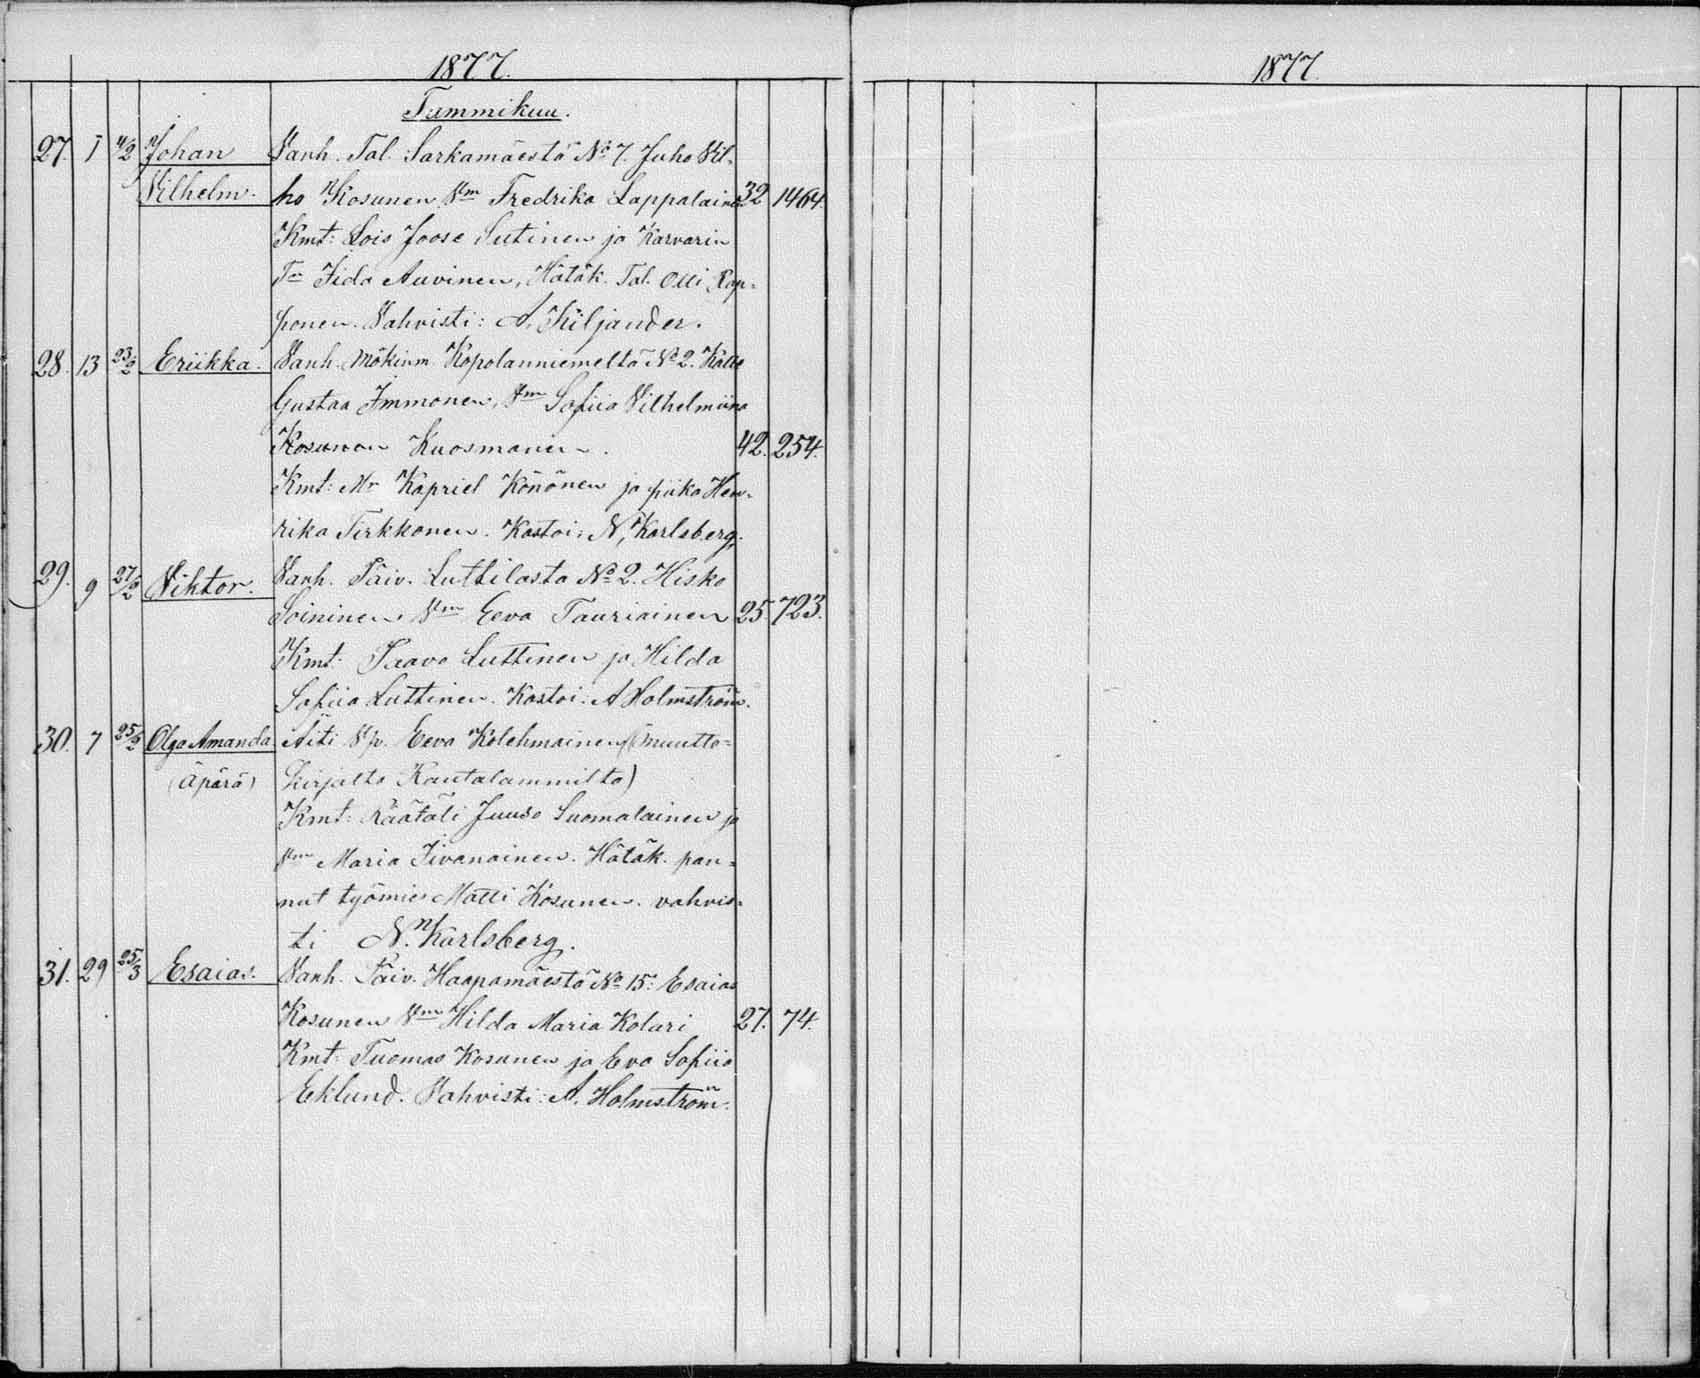 1877.
Tammikuu.
27. 1 4/2 Johan Vanh. Tal. Sarkamäestä No 7. Juho Vil-
Vilhelm. ho Kosunen Vm Fredrika Lappalainen 32 1464.
Kmt: Lois Joose Sutinen ja Karvarin
Tr Iida Auvinen, Hätäk. Tal. Olli Rop-
ponen. Vahvisti: A. Kiljander.
28. 13 23/2 Eriikka. Vanh. Mökinm. Kopolanniemeltä No 2. Kalle
Gustaa Immonen, Vm Sofiia Vilhelmiina
Kosunen Kuosmanen. 42. 254.
Kmt: Mr Kapriel Könönen ja piika Hen-
rika Tirkkonen. Kastoi: N. Karlsberg.
29. 9 27/2 Viktor. Vanh. Päiv. Luttilasta No 2. Hisko
Soininen Vm Eeva Tauriainen 25. 723.
Kmt: Paavo Luttinen ja Hilda
Sofiia Luttinen. Kastoi: A Holmström.
30. 7 25/2 Olga Amanda Äiti Vp. Eeva Kolehmainen (muutto-
(äpärä) kirjalta Rautalammilta)
Kmt: Räätäli Juuso Suomalainen ja
Vm Maria Iivanainen. Hätäk. pan-
nut työmies Matti Kosunen. vahvis-
ti N. Karlsberg.
31. 29 25/3 Esaias. Vanh. Päiv. Haapamäestä No 15: Esaias
Kosunen Vm Hilda Maria Kolari 27. 74.
Kmt: Tuomas Kosunen ja Eva Sofiia
Eklund. Vahvisti: A. Holmström.
1877.